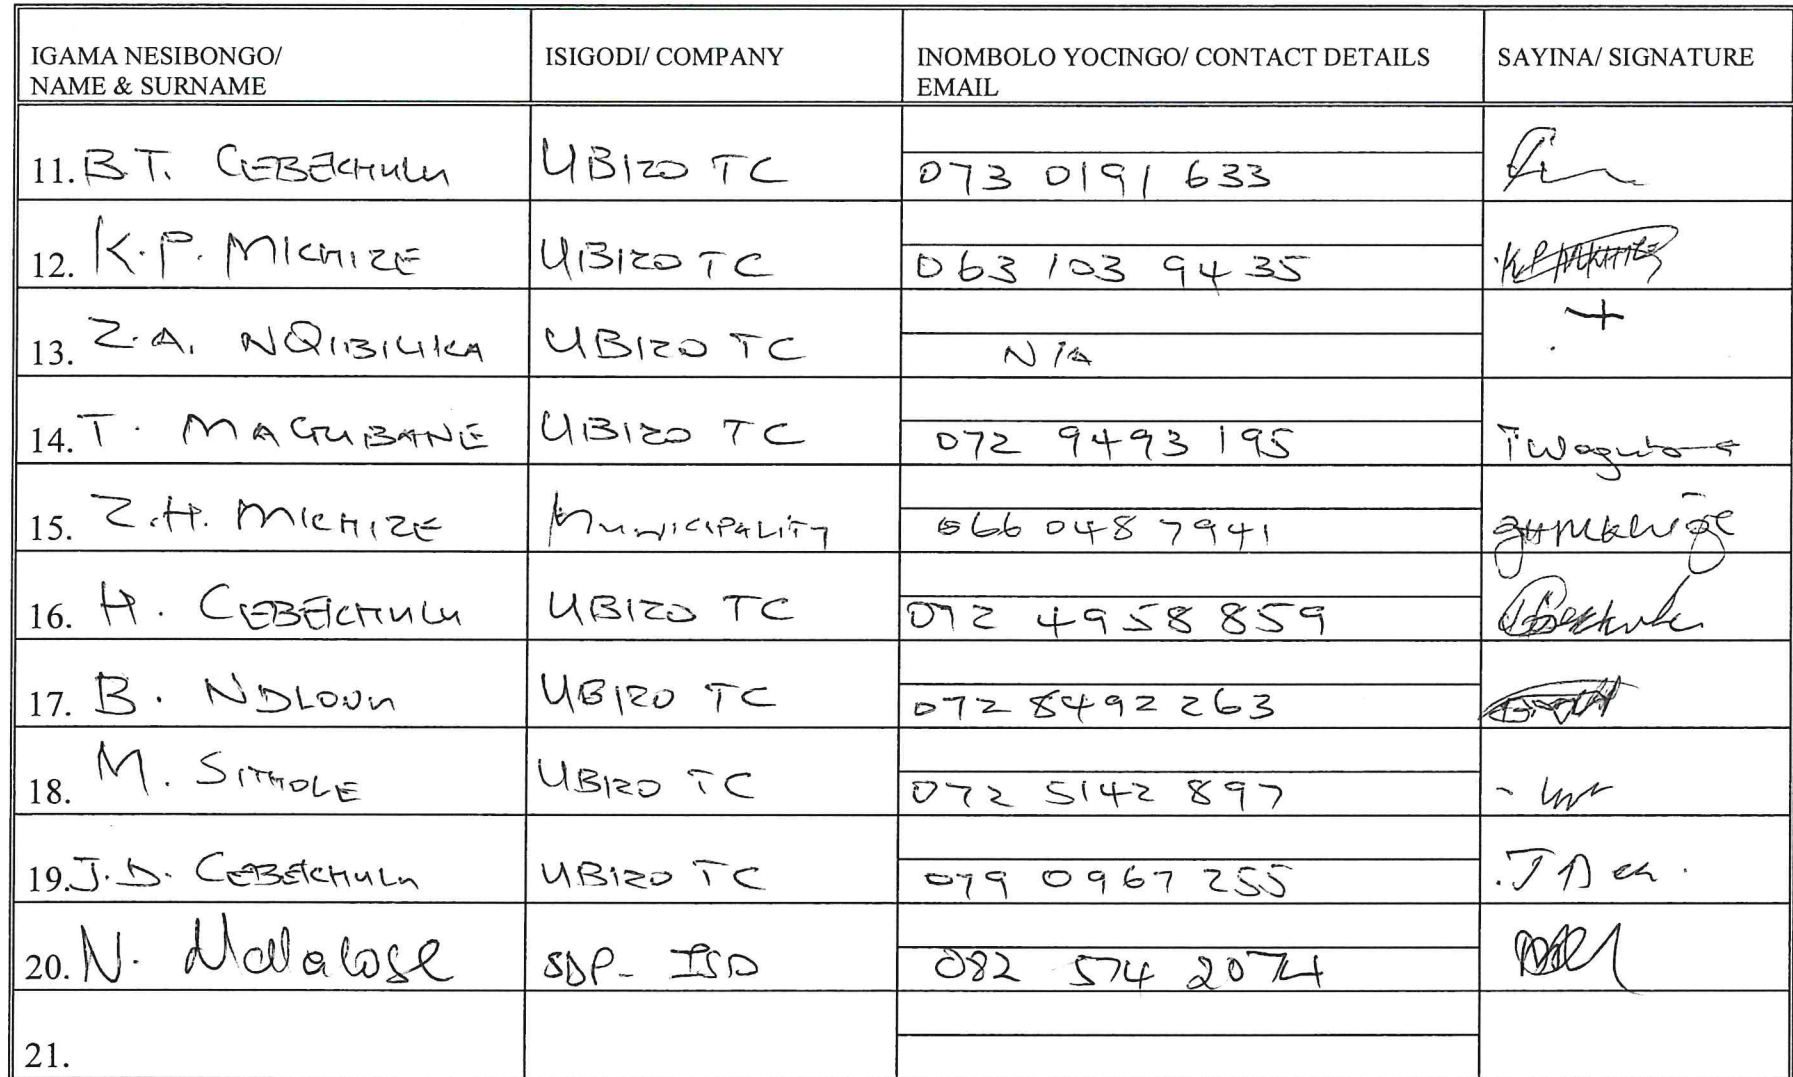 IGAMA NESIBONGO/ ISIGODI/ COMPANY INOMBOLO YOCINGO/ CONTACT DETAILS SAYINA/ SIGNATURE
NAME & SURNAME EMAIL
11. B.T. CEBEKHULU UBIZO TC 073 0191 633
12. K.P. MKHIZE UBIZO TC 063 103 9435 KP MKHIZE
13. Z.A. NQIBILIKA UBIZO TC N/A +
14. T. MAGUBANE UBIZO TC 072 9493 195
15. Z.H. MKHIZE MUNICIPALITY 066 048 7941 ZH Mkhize
16. H. CEBEKHULU UBIZO TC 072 4958 859
17. B. NDLOVU UBIZO TC 072 8492 263
18. M. SITHOLE UBIZO TC 072 5142 897
19. J.D. CEBEKHULU UBIZO TC 079 0967 255
20. N. Mdlalose SDP- ISD 082 574 2074
21.